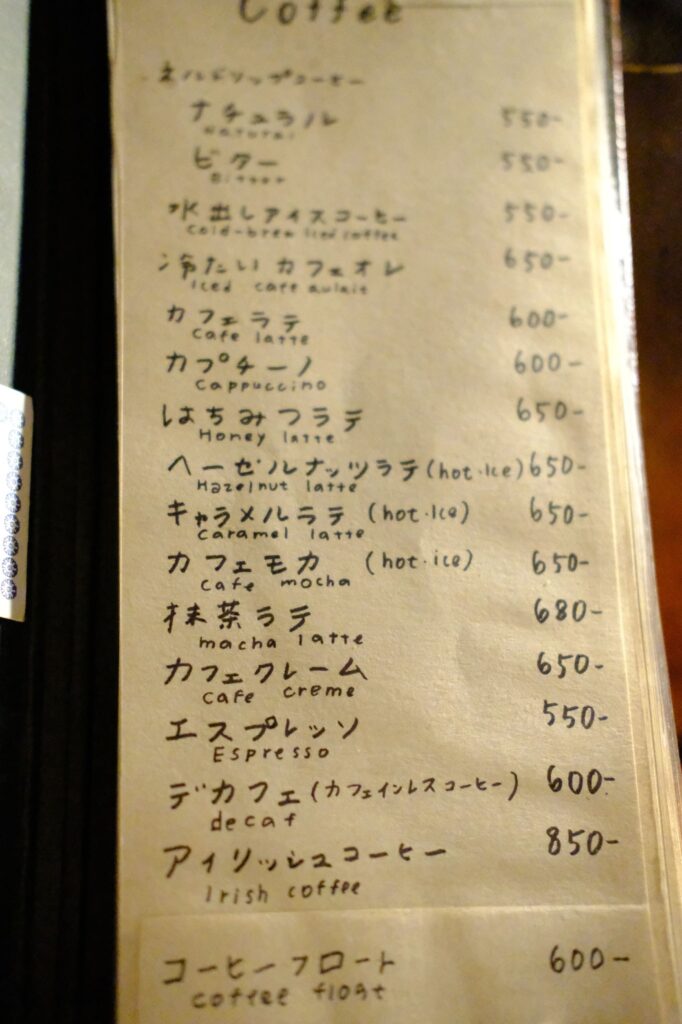 Coffee
ネルドリップコーヒー
ナチュラル 550-
Natural
ビター 550-
Bitter
水出しアイスコーヒー 550-
Cold-brew Iced coffee
冷たいカフェオレ 650-
Iced cafe aulait
カフェラテ 600-
Cafe latte
カプチーノ 600-
Cappuccino
はちみつラテ 650-
Honey latte
ヘーゼルナッツラテ (hot・Ice) 650-
Hazelnut latte
キャラメルラテ (hot・Ice) 650-
Caramel latte
カフェモカ (hot・ice) 650-
Cafe mocha
抹茶ラテ 680-
macha latte
カフェクレーム 650-
Cafe creme
エスプレッソ 550-
Espresso
デカフェ (カフェインレスコーヒー) 600-
decaf
アイリッシュコーヒー 850-
Irish coffee
コーヒーフロート 600-
coffee float